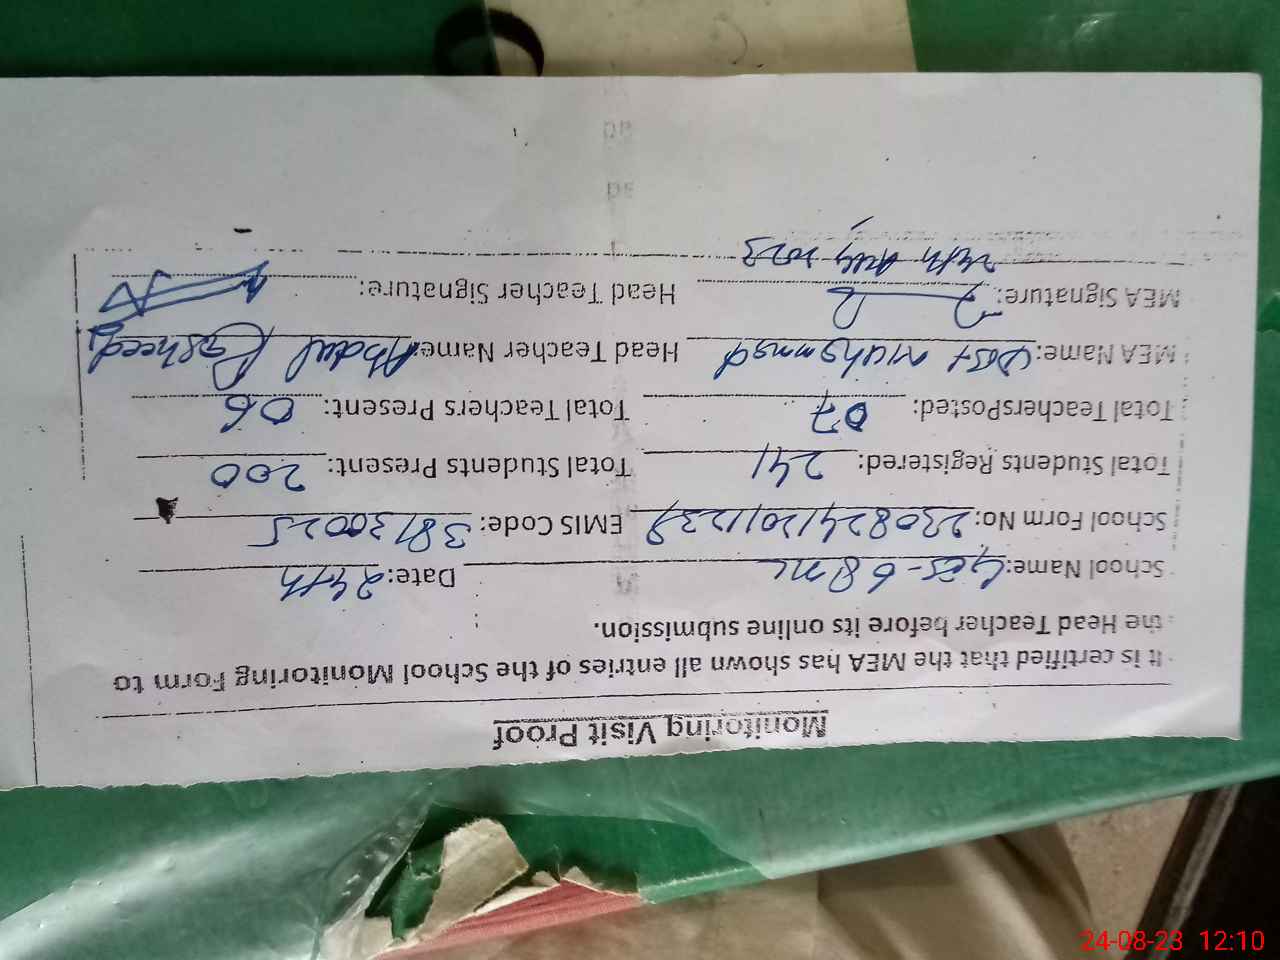 Monitoring Visit Proof
It is certified that the MEA has shown all entries of the School Monitoring Form to
the Head Teacher before its online submission.
School Name: Date: 24th
School Form No: EMIS Code: 38130025
Total Students Registered: 241 Total Students Present: 200
Total Teachers Posted: 07 Total Teachers Present: 06
MEA Name: Dost Muhammad Head Teacher Name: Abdul Rasheed
MEA Signature: Head Teacher Signature:
24th 2023
24-08-23 12:10